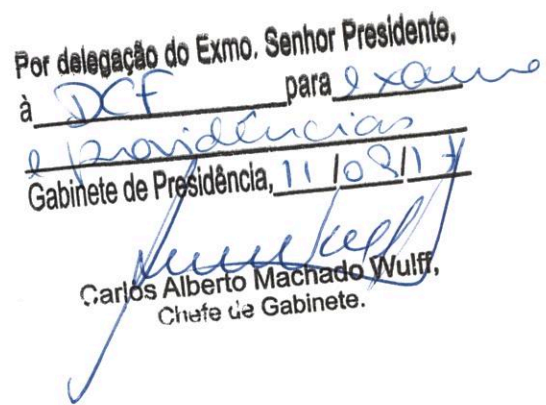 Por delegação do Exmo. Senhor Presidente,
à DCF para exame
e providências
Gabinete de Presidência, 11/09/17
Carlos Alberto Machado Wulff,
Chefe de Gabinete.